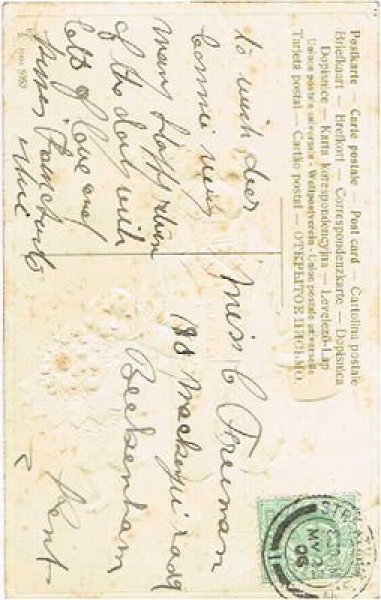 Postkarte — Carte postale — Post card — Cartolina postale
Briefkaart — Brefkort — Correspondenzkarte — Dopisnica
Dopisnice — Karta korespondencyjna — Levelező-Lap
Unione postale universale - Weltpostverein - Union postale universelle
Tarjeta postal — Cartão postal — ОТКРЫТОЕ ПИСЬМО
to wish dear
Connie very
many happy return
of the day with
lots of love and
kisses from
Miss C Freeman
Road
Beckenham
Kent
MY
06